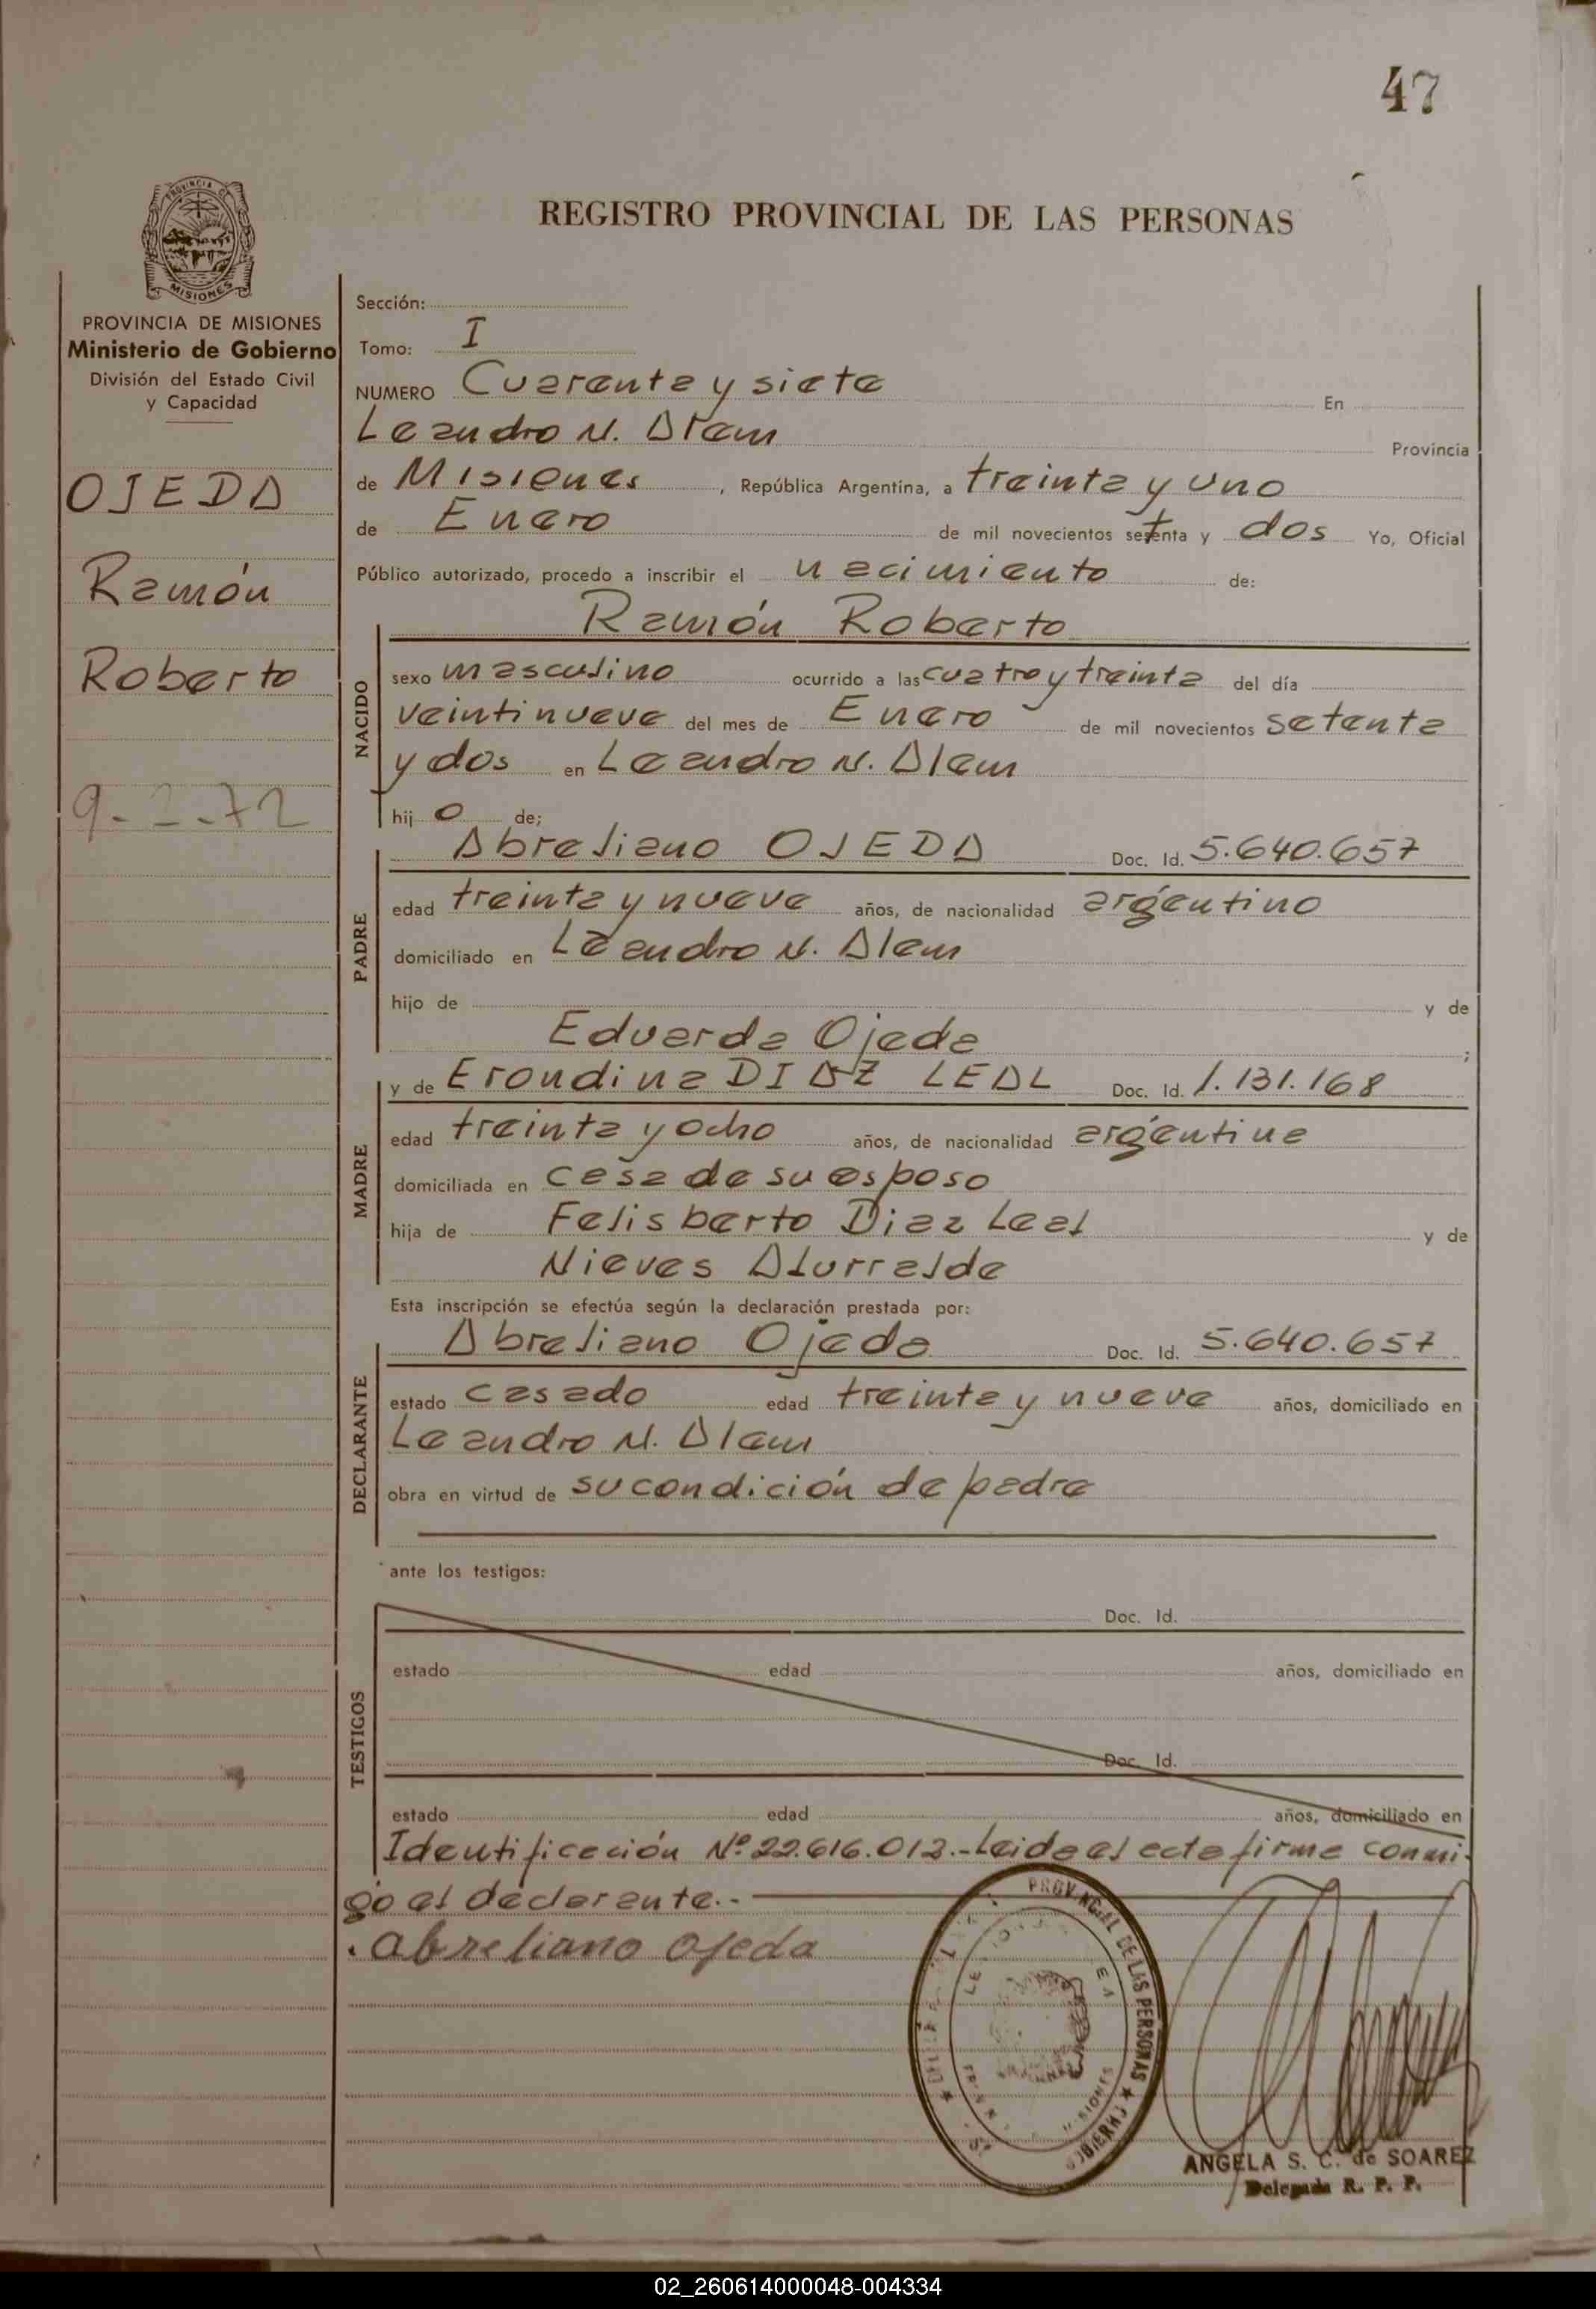 47
PROVINCIA DE
MISIONES
REGISTRO PROVINCIAL DE LAS PERSONAS
PROVINCIA DE MISIONES
Ministerio de Gobierno
División del Estado Civil
y Capacidad
OJEDA
Ramón
Roberto
9-2-72
Sección:
Tomo: I
NUMERO Cuarenta y siete En
Leandro N. Alem Provincia
de Misiones, República Argentina, a treinta y uno
de Enero de mil novecientos setenta y dos Yo, Oficial
Público autorizado, procedo a inscribir el nacimiento de:
Ramón Roberto
NACIDO
sexo masculino ocurrido a las cuatro y treinta del día
veintinueve del mes de Enero de mil novecientos setenta
y dos en Leandro N. Alem
hij o de;
Abreliano OJEDA Doc. Id. 5.640.657
PADRE
edad treinta y nueve años, de nacionalidad argentino
domiciliado en Leandro N. Alem
hijo de y de
Eduarda Ojeda ;
y de Erondina DIAZ LEAL Doc. Id. 1.131.168
MADRE
edad treinta y ocho años, de nacionalidad argentina
domiciliada en casa de su esposo
hija de Felisberto Diaz Leal y de
Nieves Alurralde
Esta inscripción se efectúa según la declaración prestada por:
Abreliano Ojeda Doc. Id. 5.640.657
DECLARANTE
estado casado edad treinta y nueve años, domiciliado en
Leandro N. Alem
obra en virtud de su condición de padre
ante los testigos:
Doc. Id.
TESTIGOS
estado edad años, domiciliado en
Doc. Id.
estado edad años, domiciliado en
Identificación Nº 22.616.012.- Leida el acta firma conmi-
go el declarante.-
Abreliano Ojeda
PROVINCIAL DE LAS PERSONAS
ANGELA S. C. de SOAREZ
Delegada R. P. P.
02_260614000048-004334